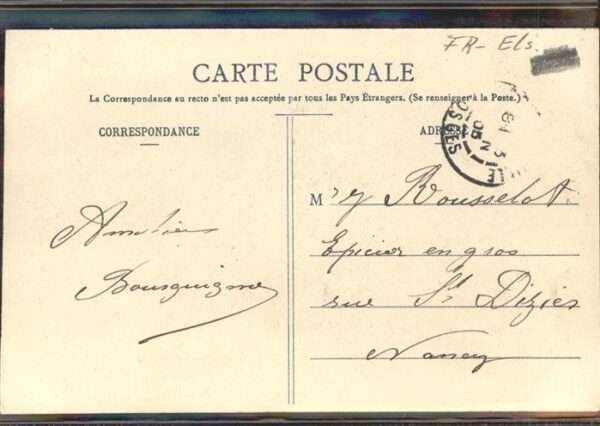 FR- Els.
CARTE POSTALE
La Correspondance au recto n'est pas acceptée par tous les Pays Étrangers. (Se renseigner à la Poste.)
CORRESPONDANCE
ADRESSE
OSGES
05
M r Rousselot
Epicier en gros
rue St Dizier
Nancy
Amitiés